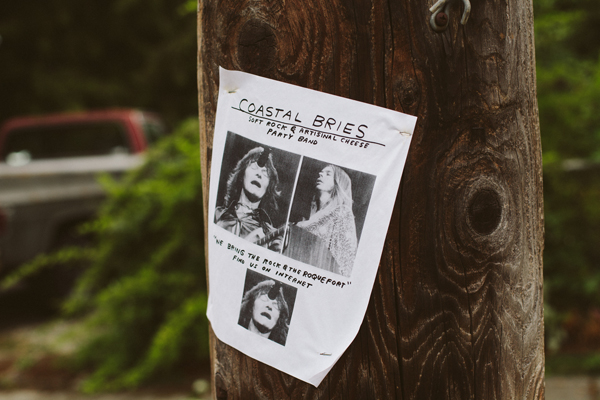 COASTAL BRIES
SOFT ROCK & ARTISINAL CHEESE
PARTY BAND
"WE BRING THE ROCK & THE ROQUEFORT"
FIND US ON INTERNET